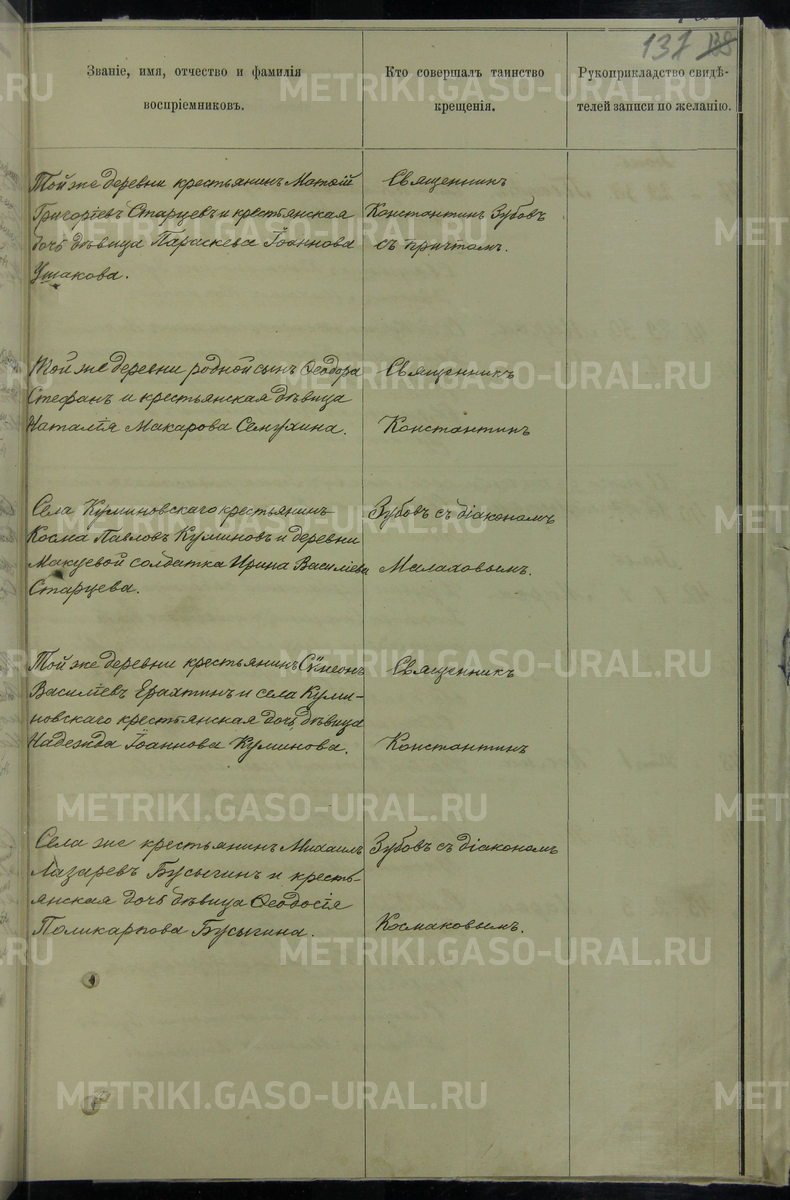 137 138
Званіе, имя, отчество и фамилія
воспріемниковъ.
Кто совершалъ таинство
крещенія.
Рукоприкладство свидѣ-
телей записи по желанію.
Той же деревни крестьянинъ Матѳій
Григоріевъ Старцевъ и крестьянская
дочь дѣвица Параскева Іоаннова
Ушакова.
Священникъ
Константинъ Зубовъ
съ причтомъ.
Той же деревни родной сынъ Ѳеодора
Стефанъ и крестьянская дѣвица
Наталія Макарова Семухина.
Священникъ
Константинъ
Села Куминовскаго крестьянинъ
Косма Павловъ Куминовъ и деревни
Макуевой солдатка Ирина Василіева
Старцева.
Зубовъ съ діакономъ
Малаховымъ.
Той же деревни крестьянинъ Сѵмеонъ
Василіевъ Ерахтинъ и села Куми-
новскаго крестьянская дочь дѣвица
Надежда Іоаннова Куминова.
Священникъ
Константинъ
Села же крестьянинъ Михаилъ
Лазаревъ Бусыгинъ и кресть-
янская дочь дѣвица Ѳеодосія
Поликарпова Бусыгина.
Зубовъ съ діакономъ
Космаковымъ.
METRIKI.GASO-URAL.RU